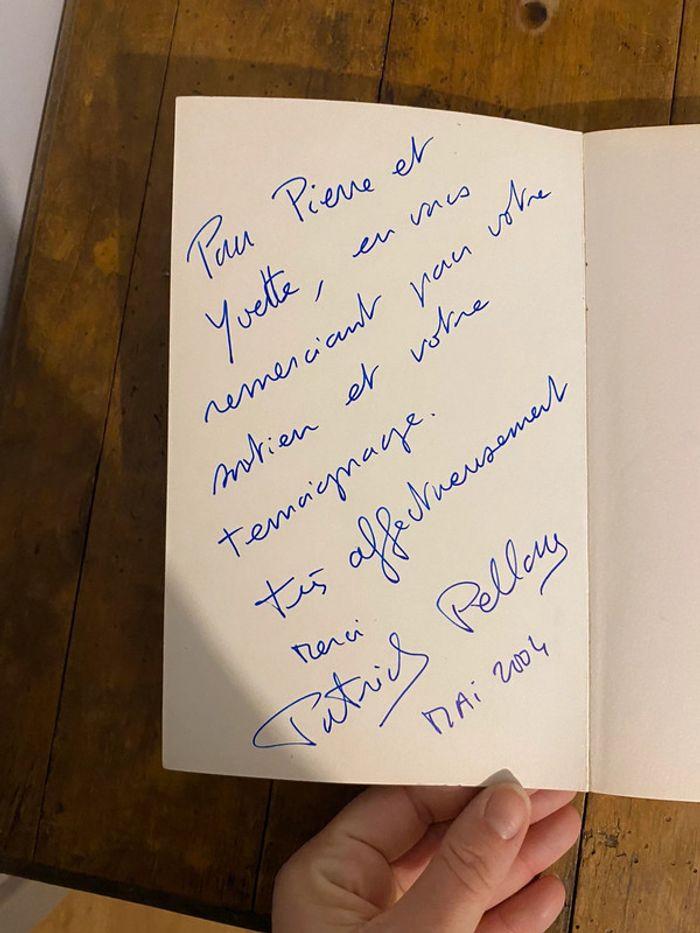 Pour Pierre et
Yvette, en vous
remerciant pour votre
soutien et votre
temoignage.
très affectueusement
merci
Patrick Pelloux
MAI 2004